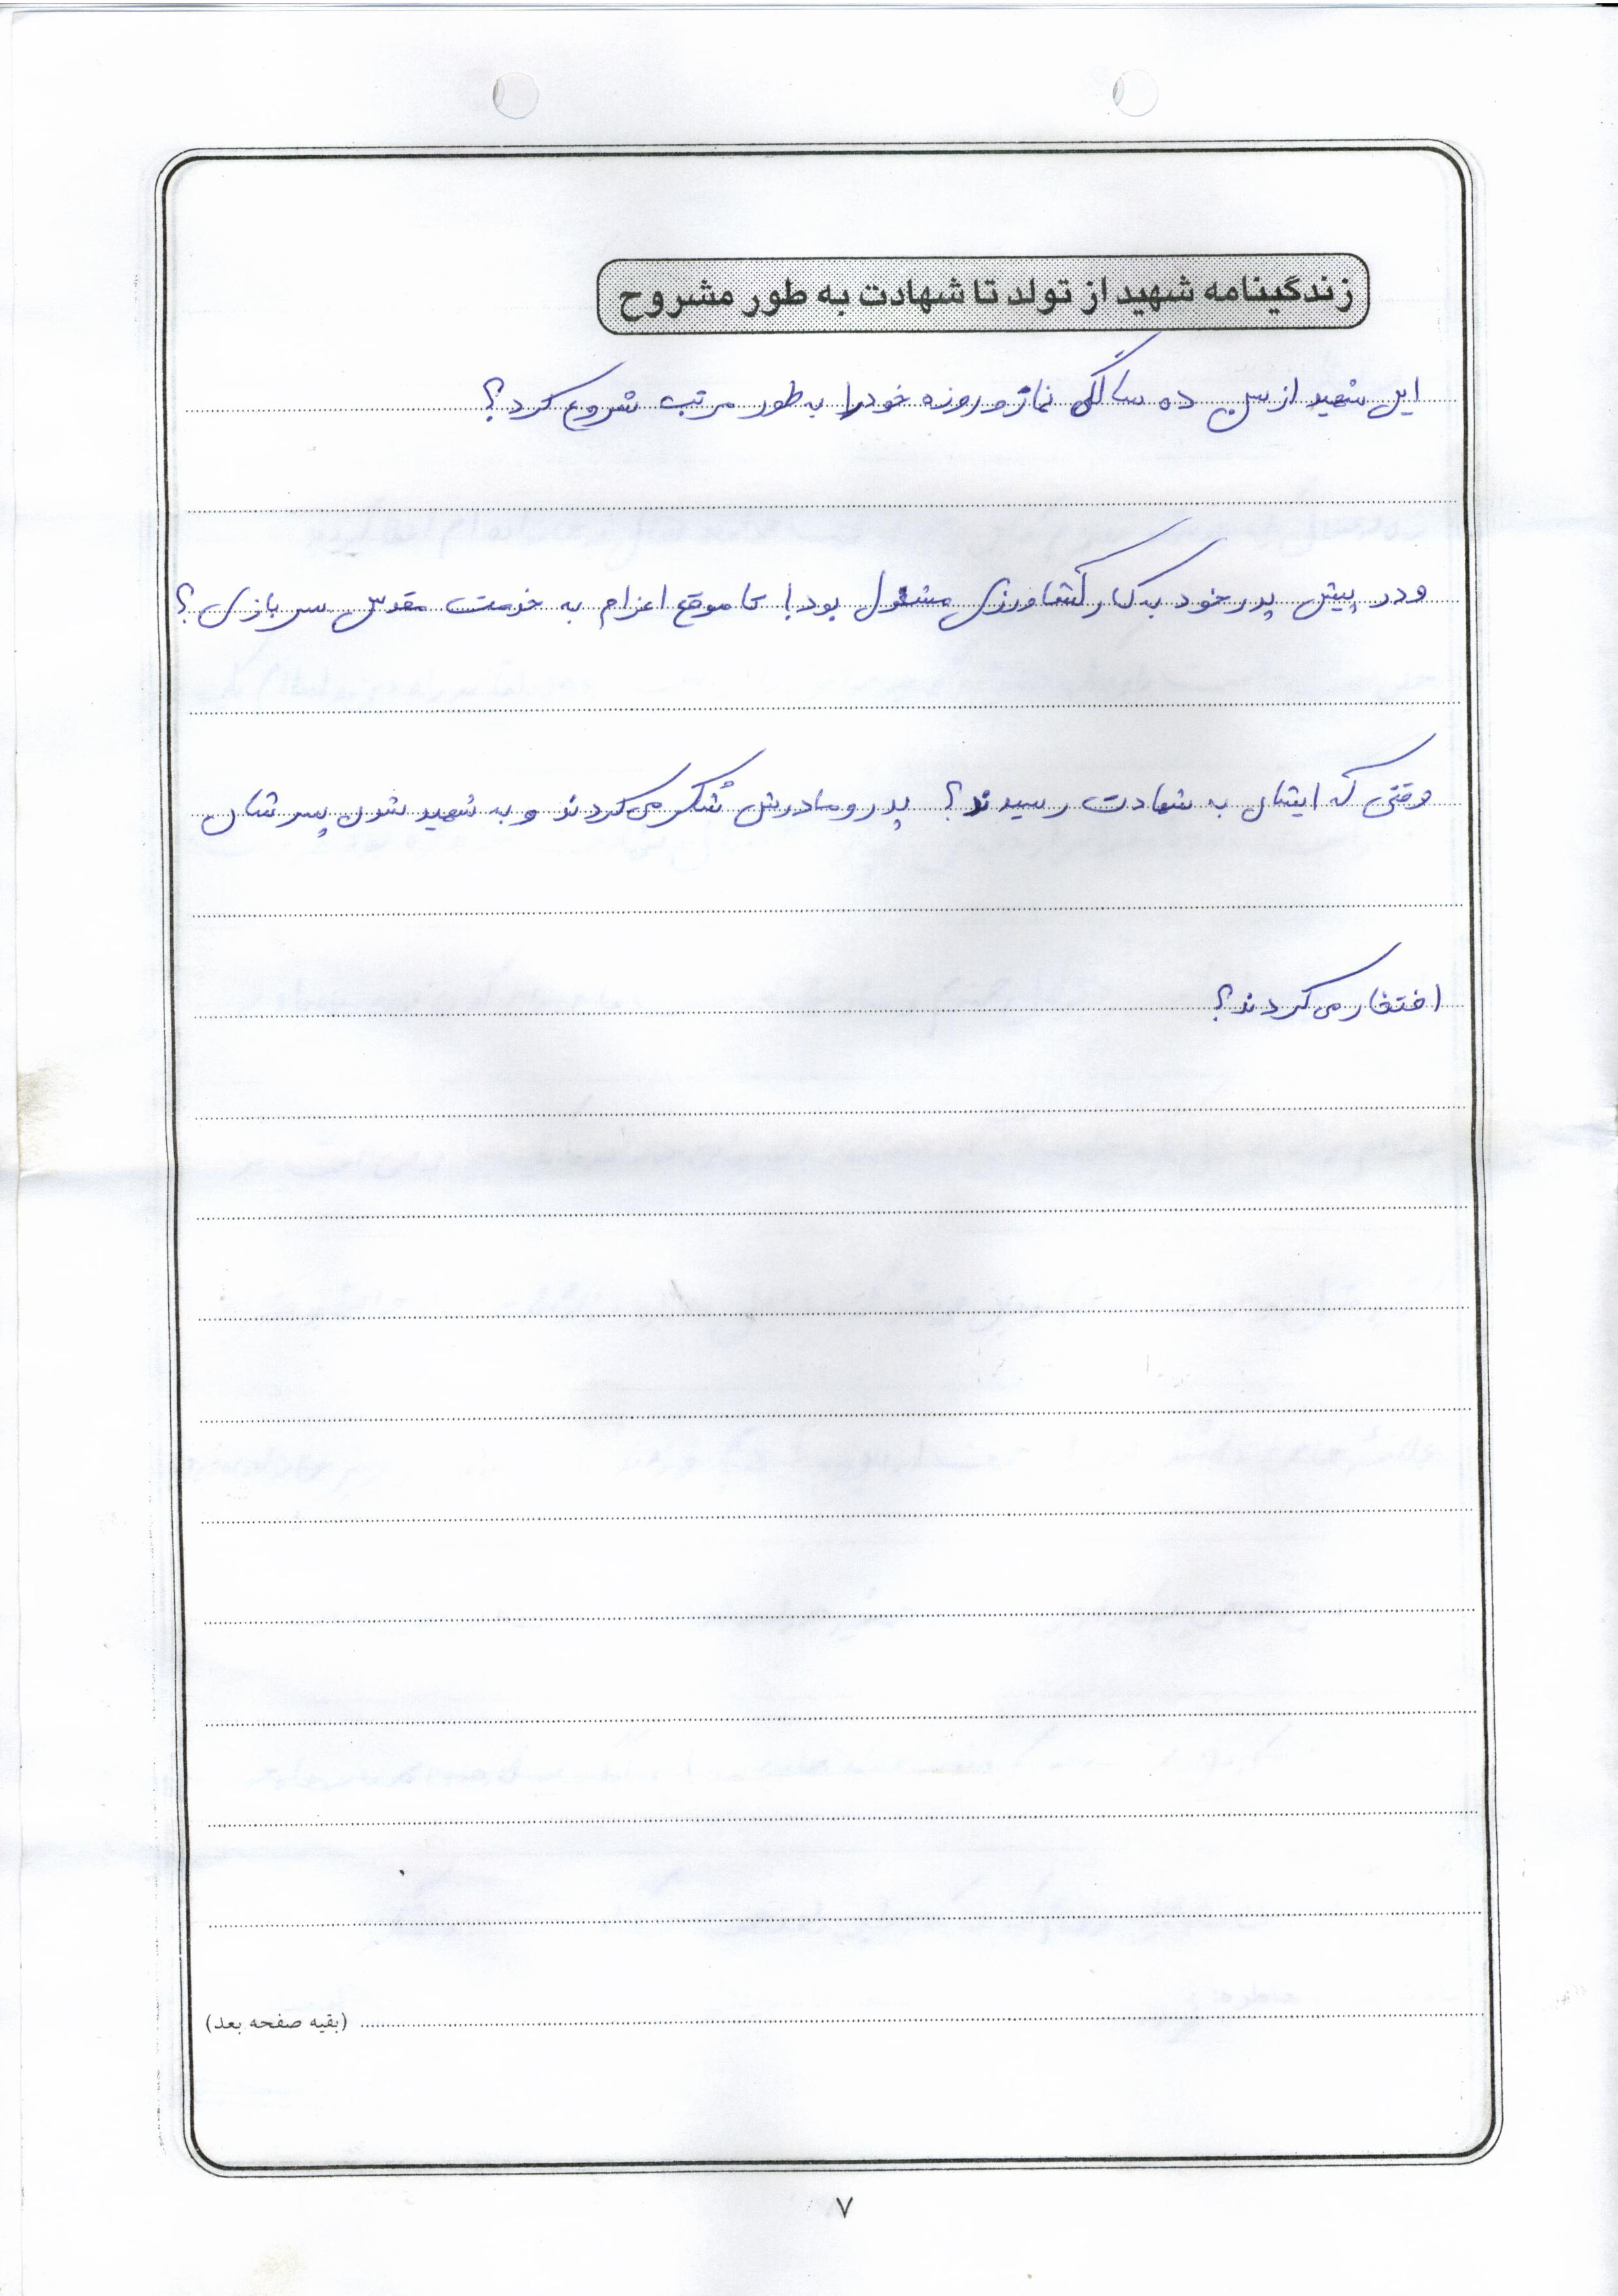 زندگینامه شهید از تولد تا شهادت به طور مشروح
این شهید از سن ده سالگی نماز و روزه خود را به طور مرتب شروع کرد؟
و در پیش پدر خود به کار کشاورزی مشغول بود! تا موقع اعزام به خدمت مقدس سربازی؟
وقتی که ایشان به شهادت رسیدند؟ پدر و مادرش شکر می کردند و به شهید شدن پسرشان
افتخار می کردند؟
(بقیه صفحه بعد)
۷